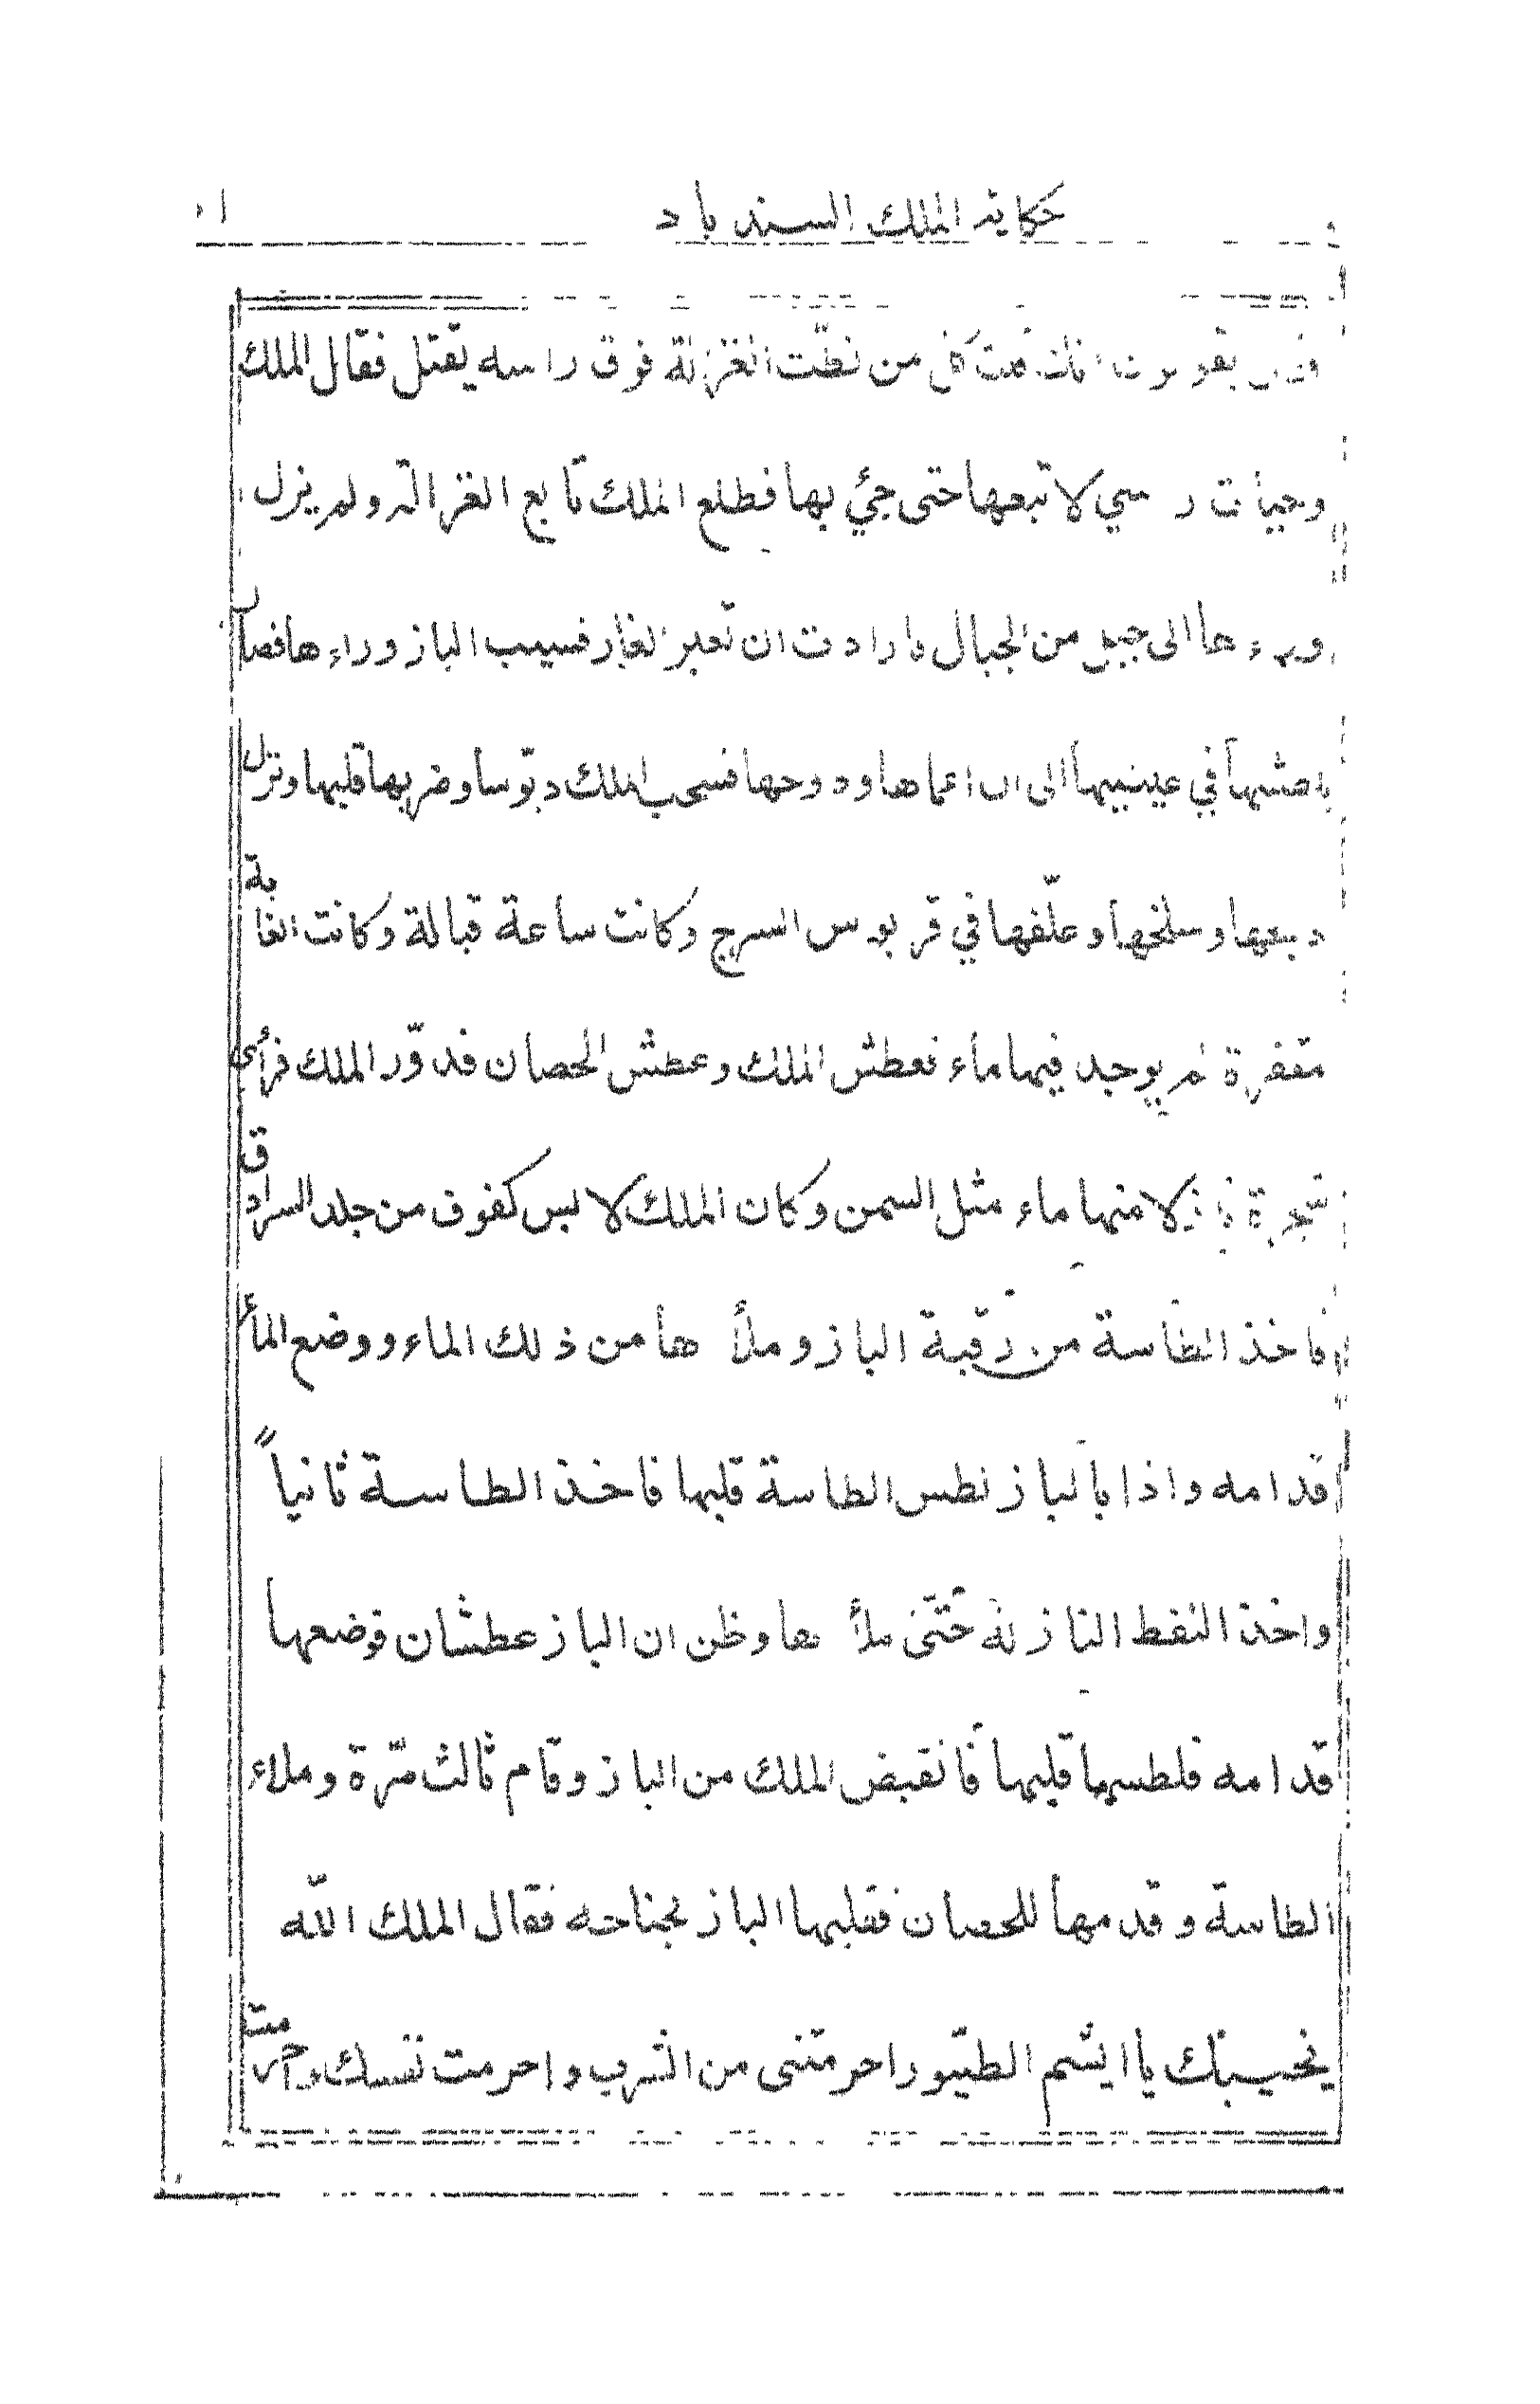 حكاية الملك السند باد
يقولون انك قلت كل من نطّت الغزالة فوق راسه يقتل فقال الملك
وحياة راسي لاتبعها حتى جيُ بها فطلع الملك تابع الغزالة ولم يزل
وراء ها الى جبل من الجبال فارادت ان تعبر الغار فسيب الباز وراء ها فصار
يلطشها في عينيها الى ان اعماها ودوحها فسحب الملك دبّوسا وضربها قلبها ونزل
دبعها وسلخها وعلّقها في قربوس السرج وكانت ساعة قبالة وكانت الغابة
مقفرة لم يوجد فيها ماء فعطش الملك وعطش الحصان فدوّر الملك فرأى
شجرة نازلا منها ماء مثل السمن وكان الملك لابس كفوف من جلد السراق
فاخذ الطاسة من رقبة الباز وملأ ها من ذلك الماء ووضع المأ
قدامه واذا بالباز نطس الطاسة قلبها فاخذ الطاسة ثانياً
واخذ النقط النازلة حتّى ملأ ها وظن ان الباز عطشان فوضعها
قدامه فلطسها قلبها فانقبض الملك من الباز وقام ثالث مرّة وملاء
الطاسة وقدمها للحصان فقلبها الباز بجناحه فقال الملك اللّه
يخيبك يا ايشم الطيور احرمتنى من الشرب واحرمت نفسك واحرمت